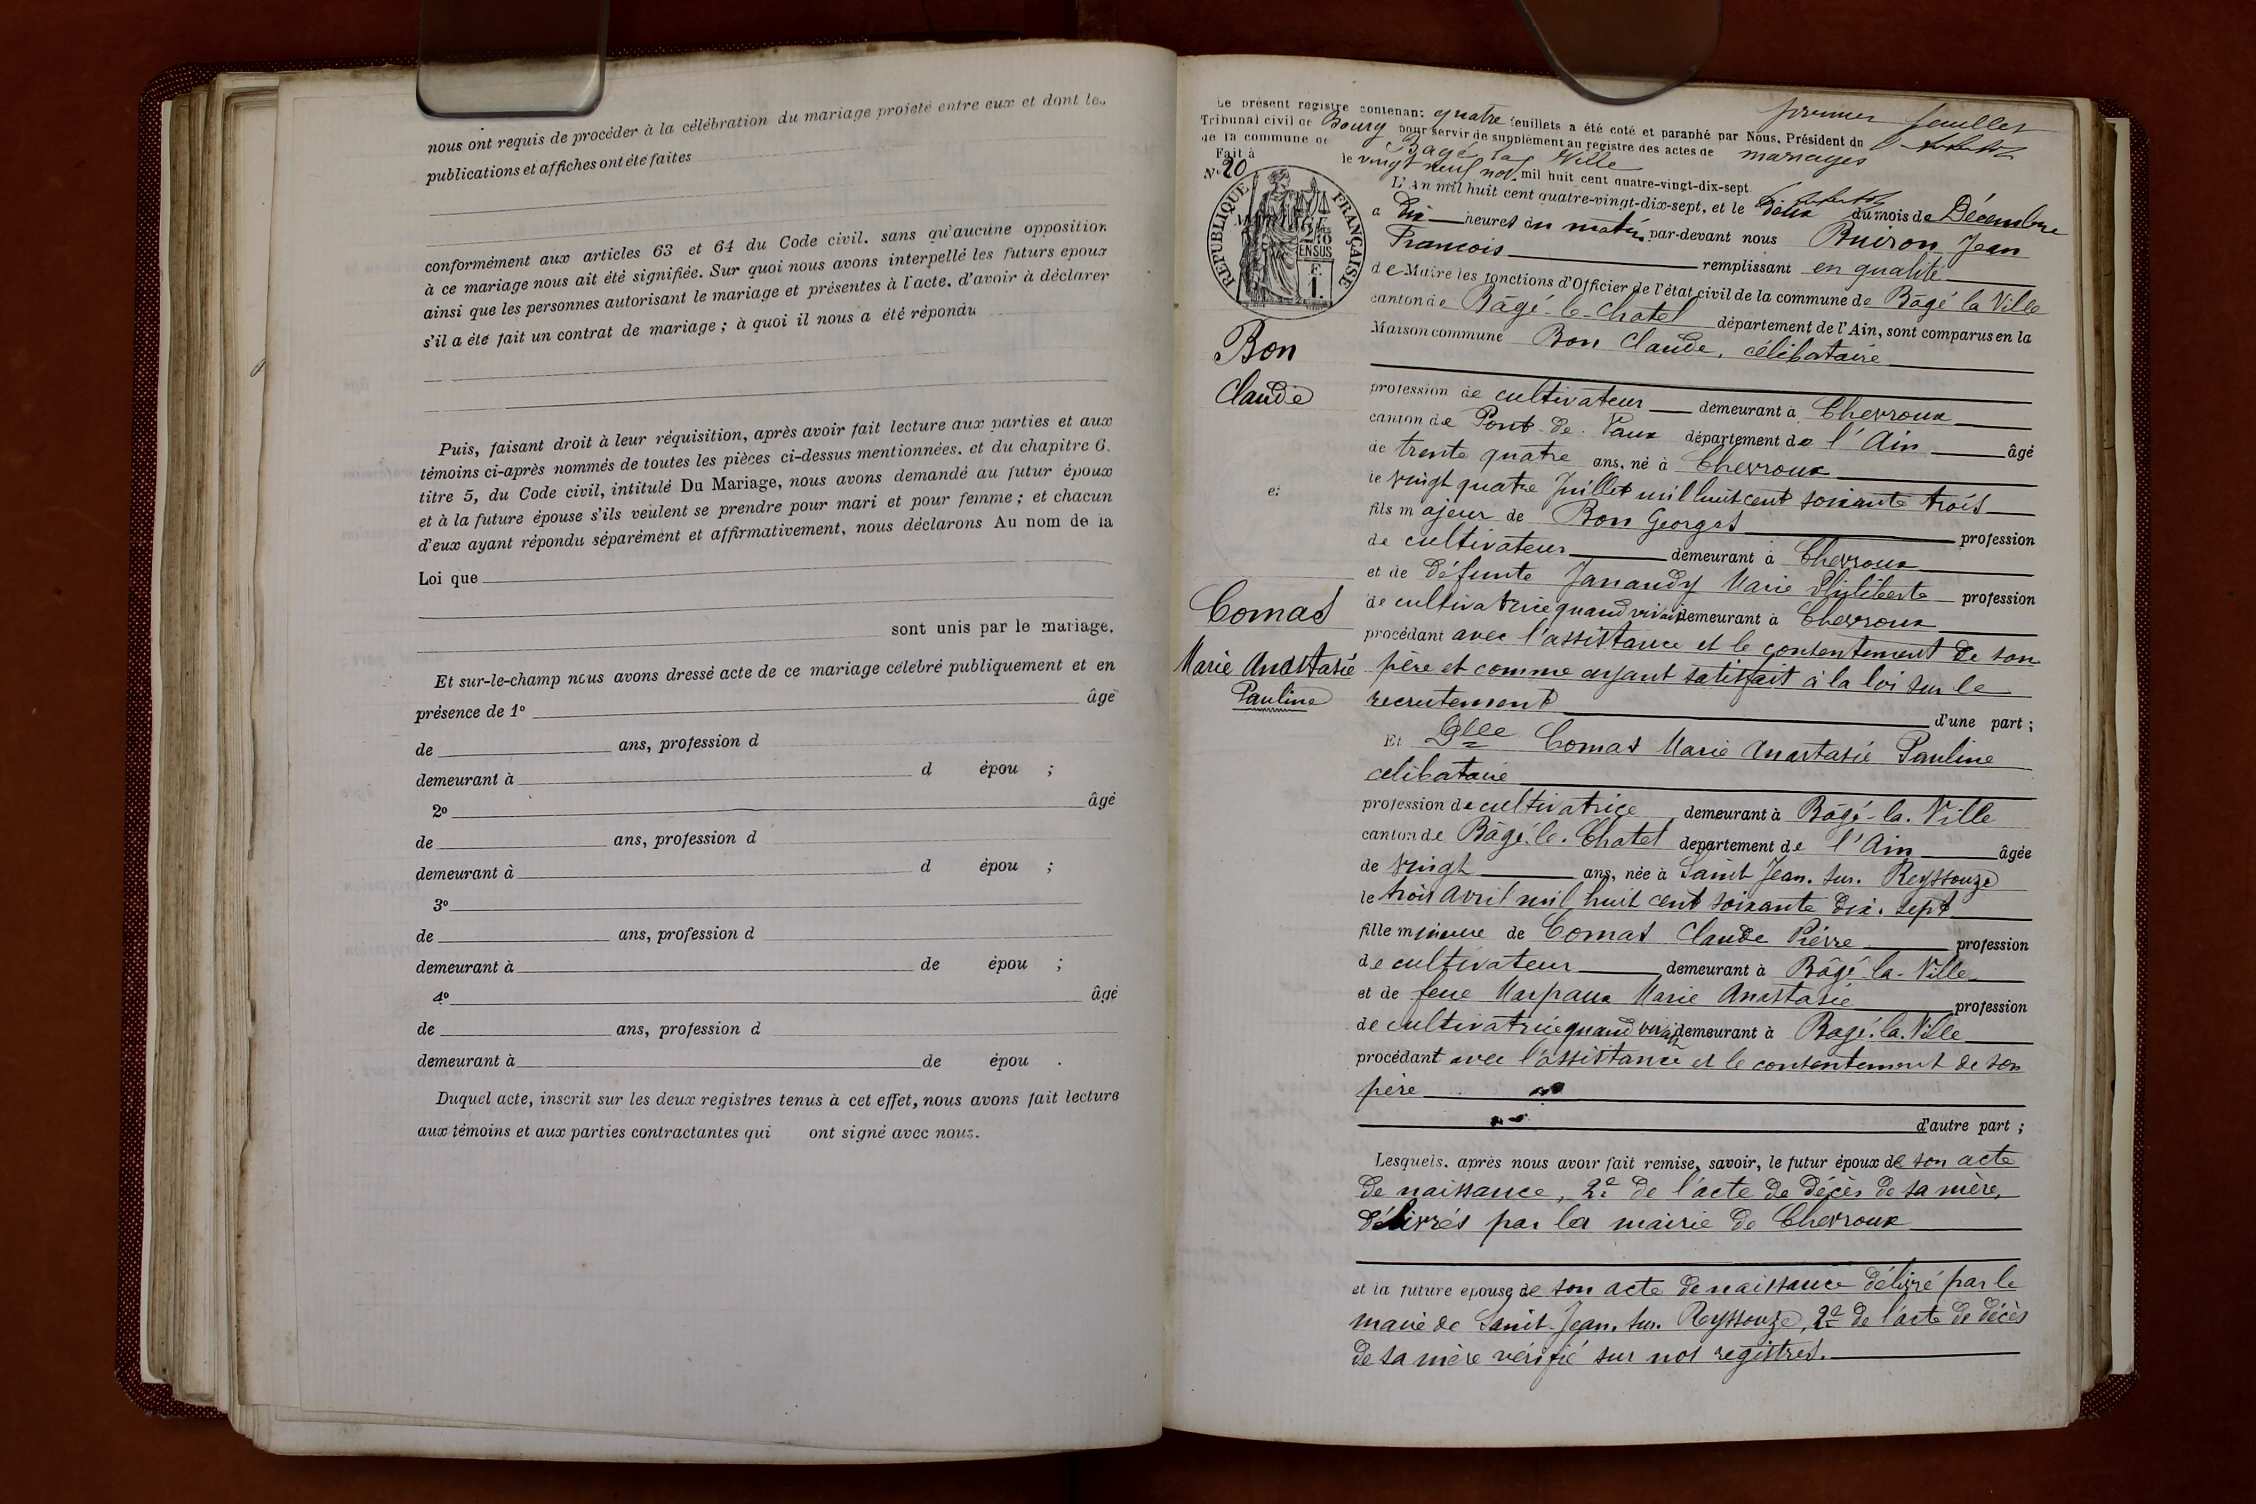 nous ont requis de procéder à la célébration du mariage projeté entre eux et dont les
publications et affiches ont été faites
conformément aux articles 63 et 64 du Code civil. sans qu'aucune opposition
à ce mariage nous ait été signifiée. Sur quoi nous avons interpellé les futurs époux
ainsi que les personnes autorisant le mariage et présentes à l'acte. d'avoir à déclarer
s'il a été fait un contrat de mariage ; à quoi il nous a été répondu
Puis, faisant droit à leur réquisition, après avoir fait lecture aux parties et aux
témoins ci-après nommés de toutes les pièces ci-dessus mentionnées. et du chapitre 6.
titre 5, du Code civil, intitulé Du Mariage, nous avons demandé au futur époux
et à la future épouse s'ils veulent se prendre pour mari et pour femme ; et chacun
d'eux ayant répondu séparément et affirmativement, nous déclarons Au nom de la
Loi que
sont unis par le mariage.
Et sur-le-champ nous avons dressé acte de ce mariage célébré publiquement et en
présence de 1º âgé
de ans, profession d
demeurant à d épou ;
2º âgé
de ans, profession d
demeurant à d épou ;
3º
de ans, profession d
demeurant à de épou ;
4º âgé
de ans, profession d
demeurant à de épou .
Duquel acte, inscrit sur les deux registres tenus à cet effet, nous avons fait lecture
aux témoins et aux parties contractantes qui ont signé avec nous.
premier feuillet
Le présent registre contenant quatre feuillets a été coté et paraphé par Nous, Président du
Tribunal civil de Bourg pour servir de supplément au registre des actes de mariages
de la commune de Bagé la Ville
Fait à le vingt neuf nov. mil huit cent quatre-vingt-dix-sept
Nº 20
RÉPUBLIQUE FRANÇAISE
L'An mil huit cent quatre-vingt-dix-sept, et le deux du mois de Décembre
a dix heures du matin par-devant nous Buiron Jean
François remplissant en qualité
de Maire les fonctions d'Officier de l'état civil de la commune de Bâgé la Ville
canton de Bâgé-le-Chatel département de l'Ain, sont comparus en la
Maison commune Bon Claude, célibataire
Bon
Claude
profession de cultivateur demeurant à Chevroux
canton de Pont-de-Vaux département de l'Ain âgé
de trente quatre ans, né à Chevroux
le vingt quatre Juillet mil huit cent soixante trois
et
fils majeur de Bon Georges profession
de cultivateur demeurant à Chevroux
et de défunte Janaudy Marie Philiberte profession
de cultivatrice quand vivait demeurant à Chevroux
Comas
Marie Anastasie
Pauline
procédant avec l'assistance et le consentement de son
père et comme ayant satisfait à la loi sur le
recrutement d'une part ;
Et Dlle Comas Marie Anastasie Pauline
célibataire
profession de cultivatrice demeurant à Bâgé-la-Ville
canton de Bâgé-le-Chatel département de l'Ain âgée
de vingt ans, née à Saint Jean-sur-Reyssouze
le trois avril mil huit cent soixante dix-sept
fille mineure de Comas Claude Pierre profession
de cultivateur demeurant à Bâgé-la-Ville
et de feue Marpaux Marie Anastasie profession
de cultivatrice quand vivait demeurant à Bagé-la-Ville
procédant avec l'assistance et le consentement de son
père
d'autre part ;
Lesquels, après nous avoir fait remise, savoir, le futur époux de son acte
de naissance, 2º de l'acte de décès de sa mère,
délivrés par la mairie de Chevroux
et la future épouse de son acte de naissance délivré par le
mairie de Saint-Jean-sur-Reyssouze, 2º de l'acte de décès
de sa mère vérifié sur nos registres.